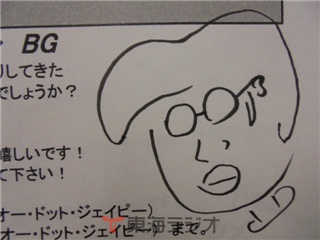 BG
してきた
でしょうか?
嬉しいです!
て下さい!
オー・ドット・ジェイピー)
オー・ドット・ジェイピー) まで。
東海ラジオ